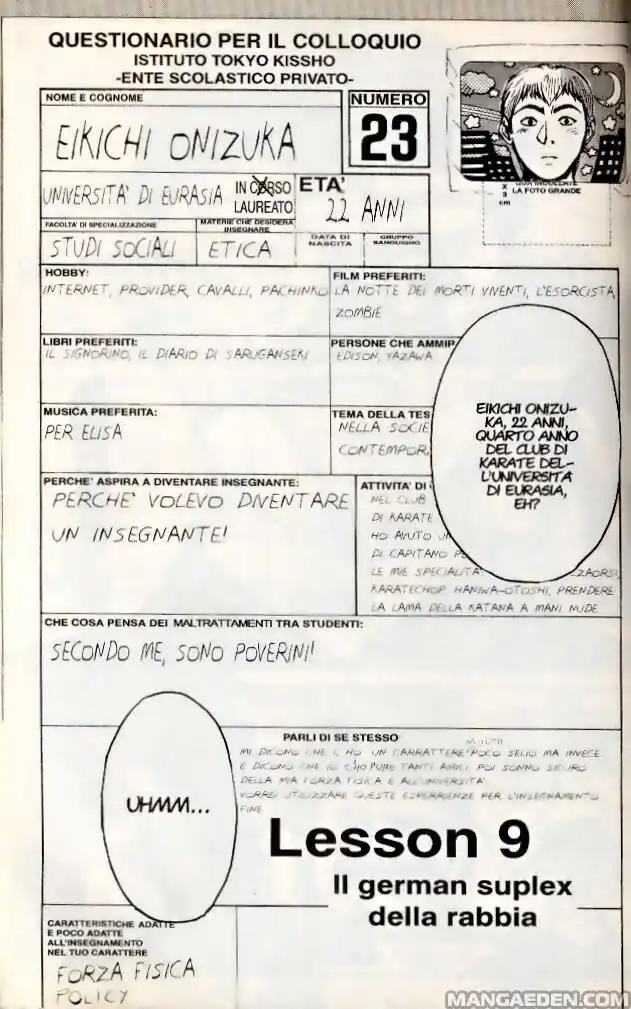 QUESTIONARIO PER IL COLLOQUIO
ISTITUTO TOKYO KISSHO
-ENTE SCOLASTICO PRIVATO-
NOME E COGNOME
EIKICHI ONIZUKA
NUMERO
23
LA FOTO GRANDE
cm
UNIVERSITA' DI EURASIA
IN CORSO
LAUREATO
ETA'
22 ANNI
FACOLTA' DI SPECIALIZZAZIONE
STUDI SOCIALI
MATERIE CHE DESIDERA
INSEGNARE
ETICA
DATA DI
NASCITA
GRUPPO
SANGUIGNO
HOBBY:
INTERNET, PROVIDER, CAVALLI, PACHINKO
FILM PREFERITI:
LA NOTTE DEI MORTI VIVENTI, L'ESORCISTA,
ZOMBIE
LIBRI PREFERITI:
IL SIGNORINO, IL DIARIO DI SARUGANSEKI
PERSONE CHE AMMIR
EDISON, YAZAWA
EIKICHI ONIZU-
KA, 22 ANNI,
QUARTO ANNO
DEL CLUB DI
KARATE DEL-
L'UNIVERSITÀ
DI EURASIA,
EH?
MUSICA PREFERITA:
PER ELISA
TEMA DELLA TES
NELLA SOCIE
CONTEMPOR
PERCHE' ASPIRA A DIVENTARE INSEGNANTE:
PERCHE' VOLEVO DIVENTARE
UN INSEGNANTE!
ATTIVITA' DI
NEL CLUB
DI KARATE
HO AVUTO
DI CAPITANO
LE MIE SPECIALITA':
KARATECHOP HANIWA-OTOSHI, PRENDERE
LA LAMA DELLA KATANA A MANI NUDE
CHE COSA PENSA DEI MALTRATTAMENTI TRA STUDENTI:
SECONDO ME, SONO POVERINI!
PARLI DI SE STESSO
MI DICONO CHE HO UN CARRATTERE POCO SELIO MA INVECE
E DICONO CHE IO HO PURE TANTI AMICI POI SONNO SICURO
DELLA MIA FORZA FISICA E ALL'UNIVERSITA'
VORREI UTILIZZARE QUESTE ESPERRIENZE PER L'INSEGNAMENTO
FINE
UHMM...
Lesson 9
Il german suplex
della rabbia
CARATTERISTICHE ADATTE
E POCO ADATTE
ALL'INSEGNAMENTO
NEL TUO CARATTERE
FORZA FISICA
POLICY
MANGAEDEN.COM